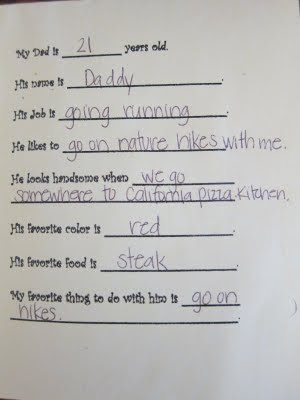 My Dad is 21 years old.
His name is Daddy.
His Job is going running.
He likes to go on nature hikes with me.
He looks handsome when we go
somewhere to California pizza kitchen.
His favorite color is red.
His favorite food is steak.
My favorite thing to do with him is go on
hikes.